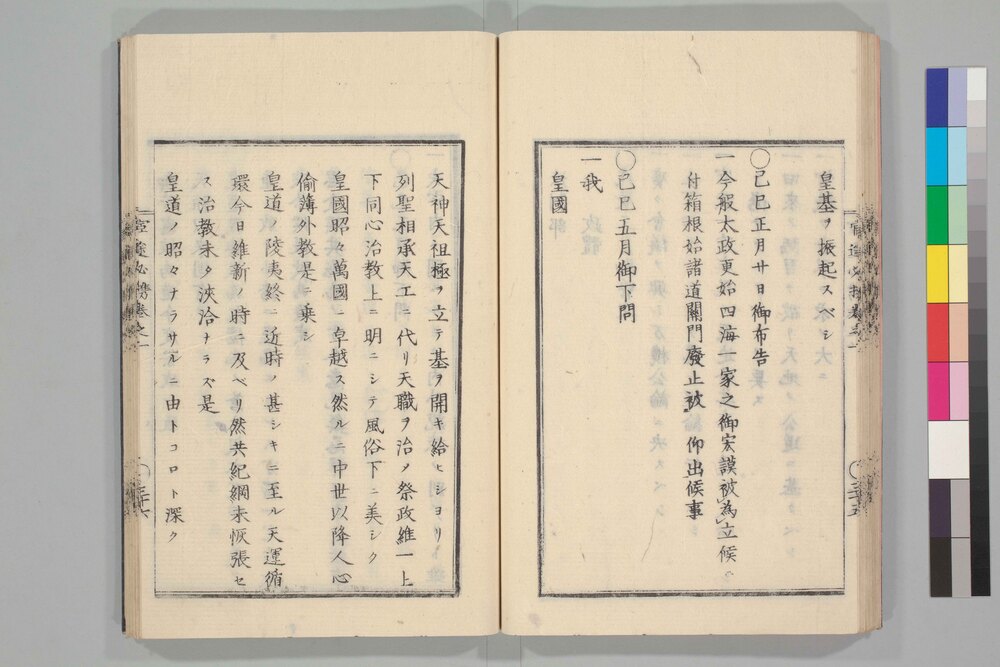 皇基ヲ振起スベシ
○己巳正月廿日御布告
一今般太政更始四海一家之御宏謨被為立候ニ
付箱根始諸道關門廢止被　仰出候事
○己巳五月御下問
一我
皇國
天神天祖極ヲ立テ基ヲ開キ給ヒシヨリ
列聖相承天工ニ代リ天職ヲ治ノ祭政維一上
下同心治教上ニ明ニシテ風俗下ニ美シク
皇國昭々萬國ニ卓越ス然ルニ中世以降人心
偷薄外教是ニ乗シ
皇道ノ陵夷終ニ近時ノ甚シキニ至ル天運循
環今日維新ノ時ニ及ベリ然共紀綱未恢張セ
ス治教未タ浹洽ナラズ是
皇道ノ昭々ナラサルニ由トコロト深ク